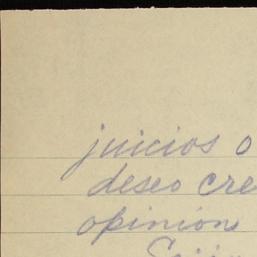 juicios o
deseo cre
opinion